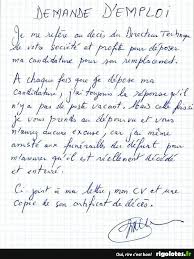 DEMANDE D'EMPLOI
Je me réfère au décès du Directeur Technique
de votre Société et profite pour déposer
ma candidature pour son remplacement.
A chaque fois que je dépose ma
candidature, j'ai toujours la réponse qu'il
n'y a pas de poste vacant. Mais cette fois-ci
je vous prends au dépourvu et vous
n'aurez aucune excuse, car j'ai même
assisté aux funérailles du défunt pour
m'assurer qu'il est réellement décédé
et enterré.
Ci-joint à ma lettre, mon CV et une
copie de son certificat de décès.
Oui, rire c'est bon! rigolotes.fr